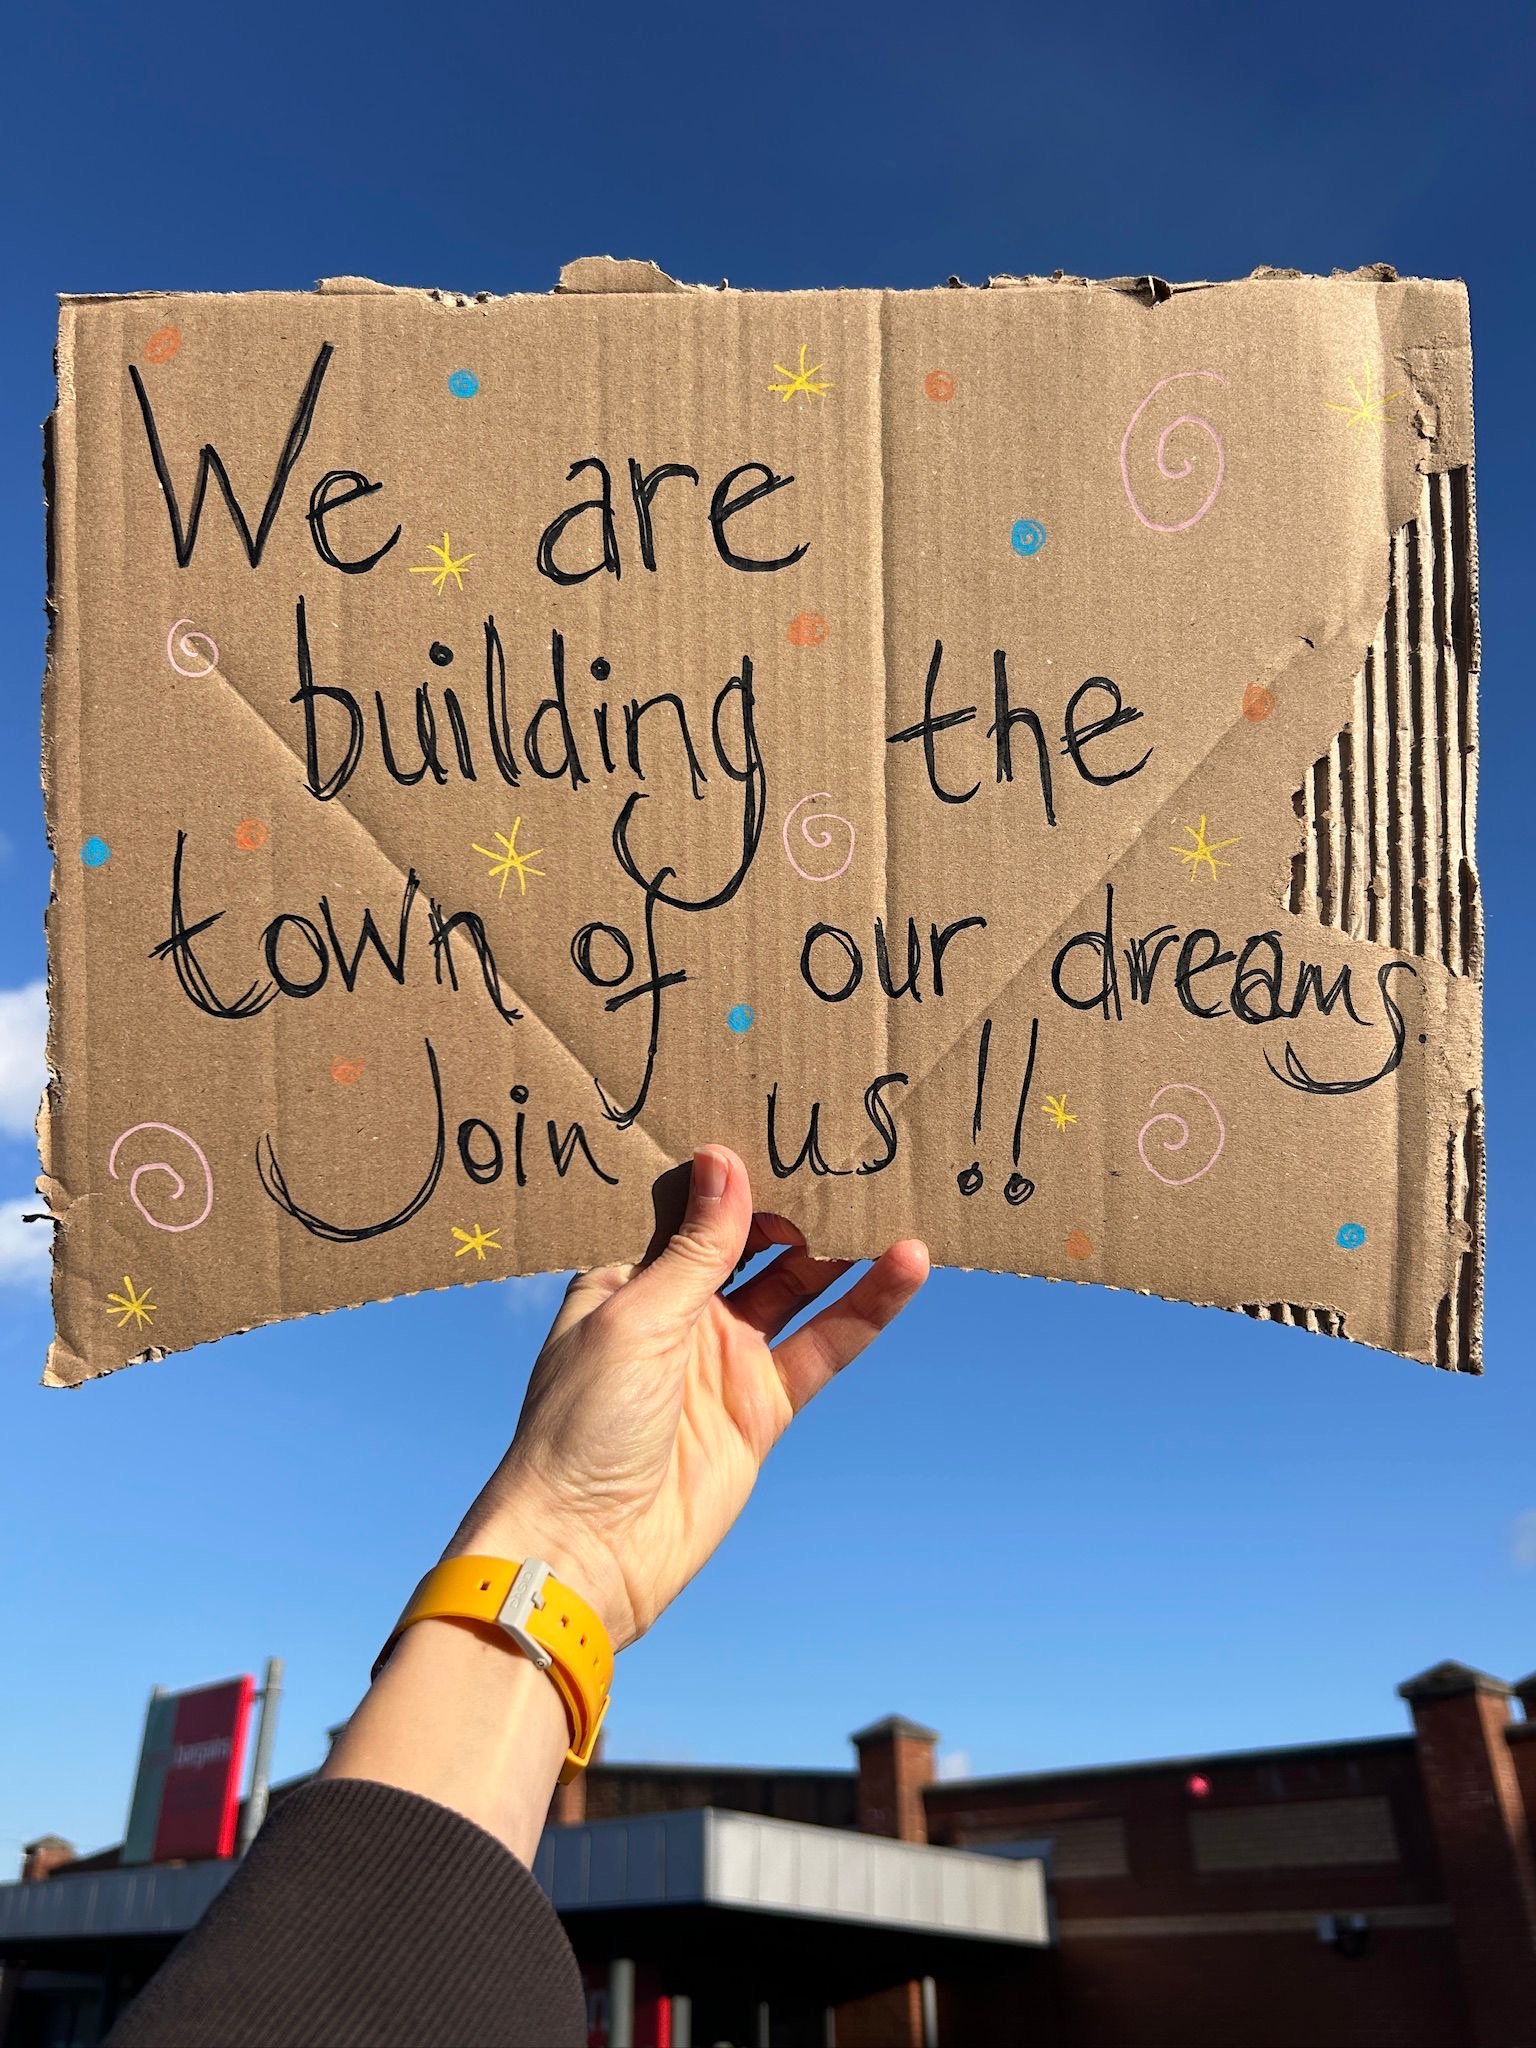 We are
building the
town of our dreams.
Join us!!
CASIO
bargains